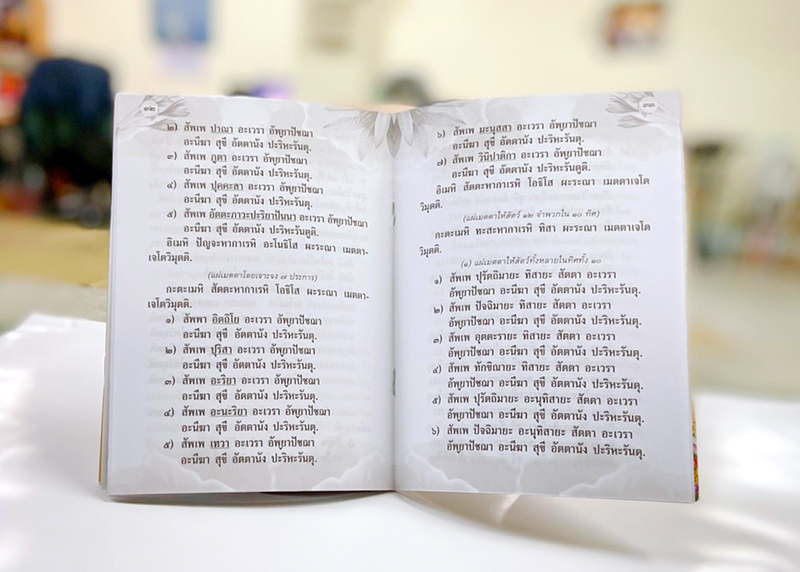 ๓๒
๒) สัพเพ ปาณา อะเวรา อัพ๎ยาปัชฌา
อะนีฆา สุขี อัตตานัง ปะริหะรันตุ.
๓) สัพเพ ภูตา อะเวรา อัพ๎ยาปัชฌา
อะนีฆา สุขี อัตตานัง ปะริหะรันตุ.
๔) สัพเพ ปุคคะลา อะเวรา อัพ๎ยาปัชฌา
อะนีฆา สุขี อัตตานัง ปะริหะรันตุ.
๕) สัพเพ อัตตะภาวะปะริยาปันนา อะเวรา อัพ๎ยาปัชฌา
อะนีฆา สุขี อัตตานัง ปะริหะรันตูติ.
อิเมหิ ปัญจะหากาเรหิ อะโนธิโส ผะระณา เมตตา-
เจโตวิมุตติ.
(แผ่เมตตาโดยเจาะจง ๗ ประการ)
กะตะเมหิ สัตตะหากาเรหิ โอธิโส ผะระณา เมตตา-
เจโตวิมุตติ.
๑) สัพพา อิตถิโย อะเวรา อัพ๎ยาปัชฌา
อะนีฆา สุขี อัตตานัง ปะริหะรันตุ.
๒) สัพเพ ปุริสา อะเวรา อัพ๎ยาปัชฌา
อะนีฆา สุขี อัตตานัง ปะริหะรันตุ.
๓) สัพเพ อะริยา อะเวรา อัพ๎ยาปัชฌา
อะนีฆา สุขี อัตตานัง ปะริหะรันตุ.
๔) สัพเพ อะนะริยา อะเวรา อัพ๎ยาปัชฌา
อะนีฆา สุขี อัตตานัง ปะริหะรันตุ.
๕) สัพเพ เทวา อะเวรา อัพ๎ยาปัชฌา
อะนีฆา สุขี อัตตานัง ปะริหะรันตุ.
๓๓
๖) สัพเพ มะนุสสา อะเวรา อัพ๎ยาปัชฌา
อะนีฆา สุขี อัตตานัง ปะริหะรันตุ.
๗) สัพเพ วินิปาติกา อะเวรา อัพ๎ยาปัชฌา
อะนีฆา สุขี อัตตานัง ปะริหะรันตูติ.
อิเมหิ สัตตะหากาเรหิ โอธิโส ผะระณา เมตตาเจโต
วิมุตติ.
(แผ่เมตตาให้สัตว์ ๑๒ จำพวกใน ๑๐ ทิศ)
กะตะเมหิ ทะสะหากาเรหิ ทิสา ผะระณา เมตตาเจโต
วิมุตติ.
(๑) แผ่เมตตาให้สัตว์ทั้งหลายในทิศทั้ง ๑๐
๑) สัพเพ ปุรัตถิมายะ ทิสายะ สัตตา อะเวรา
อัพ๎ยาปัชฌา อะนีฆา สุขี อัตตานัง ปะริหะรันตุ.
๒) สัพเพ ปัจฉิมายะ ทิสายะ สัตตา อะเวรา
อัพ๎ยาปัชฌา อะนีฆา สุขี อัตตานัง ปะริหะรันตุ.
๓) สัพเพ อุตตะรายะ ทิสายะ สัตตา อะเวรา
อัพ๎ยาปัชฌา อะนีฆา สุขี อัตตานัง ปะริหะรันตุ.
๔) สัพเพ ทักขิณายะ ทิสายะ สัตตา อะเวรา
อัพ๎ยาปัชฌา อะนีฆา สุขี อัตตานัง ปะริหะรันตุ.
๕) สัพเพ ปุรัตถิมายะ อะนุทิสายะ สัตตา อะเวรา
อัพ๎ยาปัชฌา อะนีฆา สุขี อัตตานัง ปะริหะรันตุ.
๖) สัพเพ ปัจฉิมายะ อะนุทิสายะ สัตตา อะเวรา
อัพ๎ยาปัชฌา อะนีฆา สุขี อัตตานัง ปะริหะรันตุ.